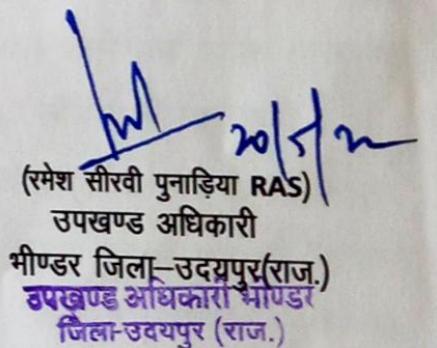 20/5/22
(रमेश सीरवी पुनाड़िया RAS)
उपखण्ड अधिकारी
भीण्डर जिला–उदयपुर(राज.)
उपखण्ड अधिकारी भीण्डर
जिला-उदयपुर (राज.)